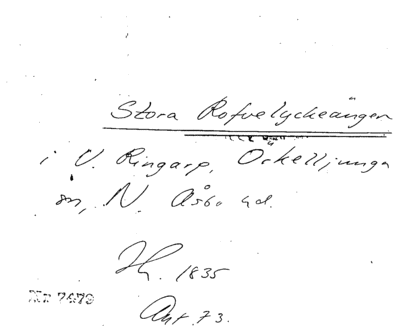 Stora Rofvelyckeängen
i V. Ringarp, Örkelljunga
sn, N. Åsbo hd.
Hh. 1835
Akt 73.
Nr 7479